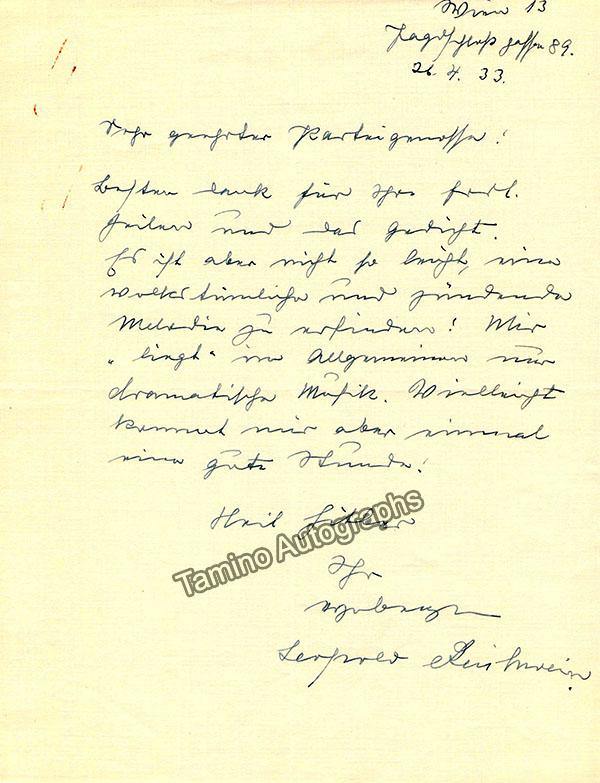 Wien 13
Jagdschloß gasse 89.
26. 4. 33.
Sehr geehrter Parteigenosse!
Besten dank für Ihre frdl.
Zeilen und das Gedicht.
Es ist aber nicht so leicht, eine
volkstümliche und zündende
Melodie zu erfinden! Mir
„liegt“ im Allgemeinen nur
dramatische Musik. Vielleicht
kommt mir aber einmal
eine gute Stunde!
Heil Hitler
Tamino Autographs
Ihr
ergebener
Leopold Reichwein